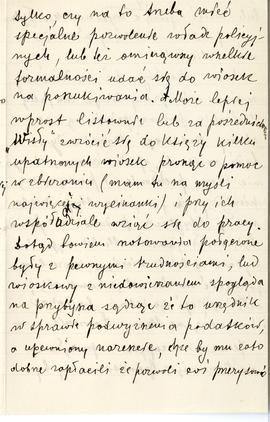 tylko, czy na to trzeba mieć
specjalne pozwolenie władz policyj-
nych, lub też ominąwszy wszelkie
formalności udać się do wiosek
na poszukiwania. Może lepiej
wprost listownie lub za pośrednictwem
"Wisły" zwrócić się do księży kilku
upatrzonych wiosek prosząc o pomoc
w zbieraniu (mam tu na myśli
najwięcej wycinanki) i przy ich
współudziale wziąć się do pracy.
Dotąd bowiem notowania połączone
były z pewnymi trudnościami, lud
wioskowy z niedowierzaniem spogląda
na przybysza sądząc że to urzędnik
w sprawie podwyższenia podatków,
a upewniony nareszcie, chce by mu za to
dobrze zapłacili że pozwoli coś przerysować